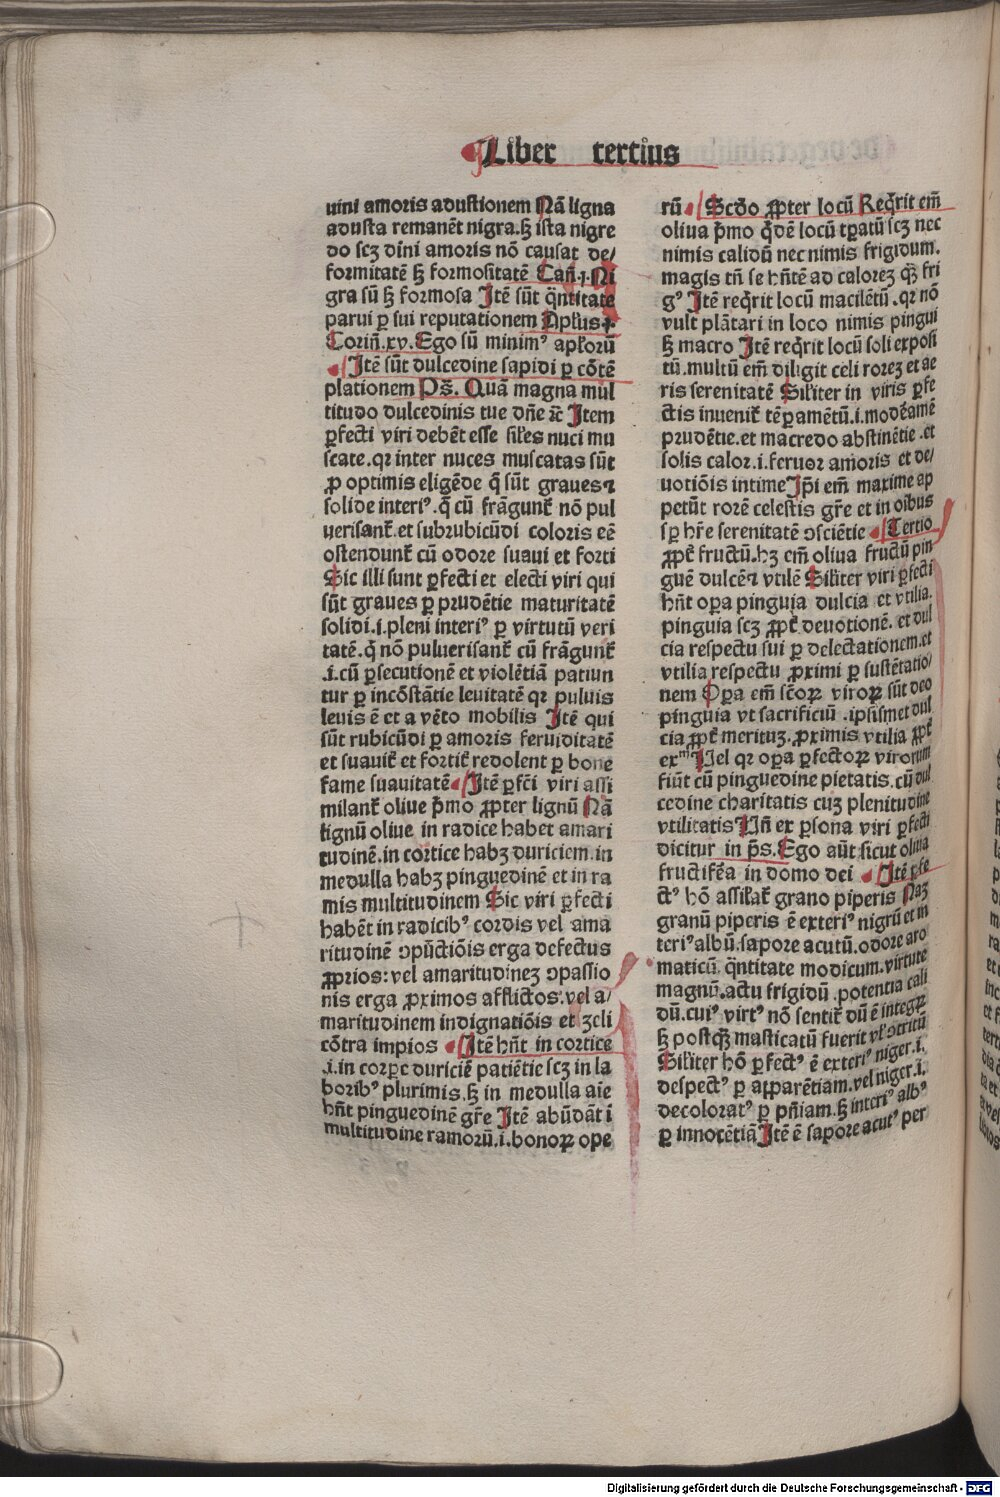 Liber tertius
uini amoris adustionem Nā ligna
adusta remanēt nigra.ꝫ ista nigre
do scꝫ diīni amoris nō causat de/
formitatē ꝫ formositatē Cañ.j.Ni
gra sū ꝫ formosa Itē sūt q̄ntitate
parui ꝑ sui reputationem Apl'us
Coriñ.xv. Ego sū minimꝰ apl'oꝝū
Itē sūt dulcedine sapidi ꝑ cōtē
plationem Ps̄. Quā magna mul
titudo dulcedinis tue dn̄e ⁊c̄ Item
ꝑfecti viri debēt esse sil'es nuci mu
scate.qꝛ inter nuces muscatas sūt
ꝓ optimis eligēde q̄ sūt graues ⁊
solide interiꝰ.q̄ cū frāgunt᷑ nō pul
uerisant᷑.et subrubicūdi coloris eē
ostendunt᷑ cū odore suaui et forti
Sic illi sunt ꝑfecti et electi viri qui
sūt graues ꝑ prudētie maturitatē
solidi.i.pleni interiꝰ ꝑ virtutū veri
tatē.q̄ nō puluerisant᷑ cū frāgunt᷑
.i.cū ꝑsecutionē et violētiā patiun
tur ꝑ incōstātie leuitatē qꝛ puluis
leuis ē et a vēto mobilis Itē qui
sūt rubicūdi ꝑ amoris feruiditatē
et suauit᷑ et fortit᷑ redolent ꝑ bone
fame suauitatē Itē ꝑfc̄i viri assi
milant᷑ oliue p̄mo ꝓpter lignū Nā
lignū oliue in radice habet amari
tudinē.in cortice habꝫ duriciem.in
medulla habꝫ pinguedinē et in ra
mis multitudinem Sic viri ꝑfecti
habēt in radicibꝰ cordis vel ama
ritudinē ↄpūctiōis erga defectus
ꝓprios: vel amaritudinez ↄpassio
nis erga ꝓximos afflictos.vel a/
maritudinem indignatiōis et zeli
cōtra impios Itē hn̄t in cortice
.i.in corꝑe duriciē patiētie scꝫ in la
boribꝰ plurimis.ꝫ in medulla aīe
hn̄t pinguedinē gr̄e Itē abūdāt i
multitudine ramoꝝū.i.bonoꝝ ope
rū Scd̄o ꝓpter locū Req̄rit em̄
oliua p̄mo q̄dē locū tꝑatū scꝫ nec
nimis calidū nec nimis frigidum.
magis tn̄ se hn̄tē ad calorez qꝫ fri
gꝰ Itē req̄rit locū macilētū.qꝛ nō
vult plātari in loco nimis pingui
ꝫ macro Itē req̄rit locū soli exposi
tū.multū em̄ diligit celi rorez et ae
ris serenitatē Sil'iter in viris ꝑfe
ctis inuenit᷑ tēꝑamētū.i.moderamē
prudētie.et macredo abstinētie.et
solis calor.i.feruor amoris et de/
uotiōis intime Ip̄i em̄ maxime ap
petūt rorē celestis gr̄e et in oībus
sꝑ hr̄e serenitatē ↄsciētie Tertio
ꝓpt᷑ fructū.hꝫ em̄ oliua fructū pin
guē dulcē ⁊ vtilē Sil'iter viri ꝑfecti
hn̄t oꝑa pinguia dulcia et vtilia.
pinguia scꝫ ꝓpt᷑ deuotionē. et dul
cia respectu sui ꝑ delectationem.et
vtilia respectu ꝓximi ꝑ sustētatio/
nem Oꝑa em̄ sc̄toꝝ viroꝝ sūt deo
pinguia vt sacrificiū.ipsismet dul
cia ꝓpt᷑ meritū.ꝓximis vtilia ꝓpt᷑
exᵐ Uel qꝛ oꝑa ꝑfectoꝝ virorum
fiūt cū pinguedine pietatis.cū dul
cedine charitatis cuꝫ plenitudine
vtilitatis Uñ ex ꝑsona viri ꝑfecti
dicitur in ps̄. Ego aūt sicut oliua
fructifera in domo dei Itē ꝑfe
ctꝰ hō assil'at᷑ grano piperis Naꝫ
granū piperis ē exteriꝰ nigrū et in
teriꝰ albū.sapore acutū.odore aro
maticū.q̄ntitate modicum.virtute
magnū.actu frigidū.potentia cali
dū.cuiꝰ virtꝰ nō sentit᷑ dū ē integꝝ
ꝫ postqꝫ masticatū fuerit vl' ↄtritū
Sil'iter hō ꝑfectꝰ ē exteriꝰ niger.i.
despectꝰ ꝑ apparētiam.vel niger.i.
decoloratꝰ ꝑ pn̄iam.ꝫ interiꝰ albꝰ
ꝑ innocētiā Itē ē sapore acutꝰ per
Digitalisierung gefördert durch die Deutsche Forschungsgemeinschaft - DFG